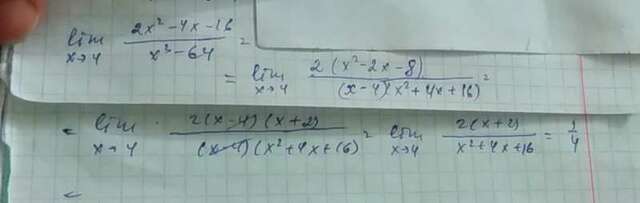 lim x→4 (2x² - 4x - 16)/(x³ - 64) =
= lim x→4 2(x² - 2x - 8)/((x-4)(x² + 4x + 16)) =
= lim x→4 2(x-4)(x+2)/((x-4)(x² + 4x + 16)) = lim x→4 2(x+2)/(x² + 4x + 16) = 1/4